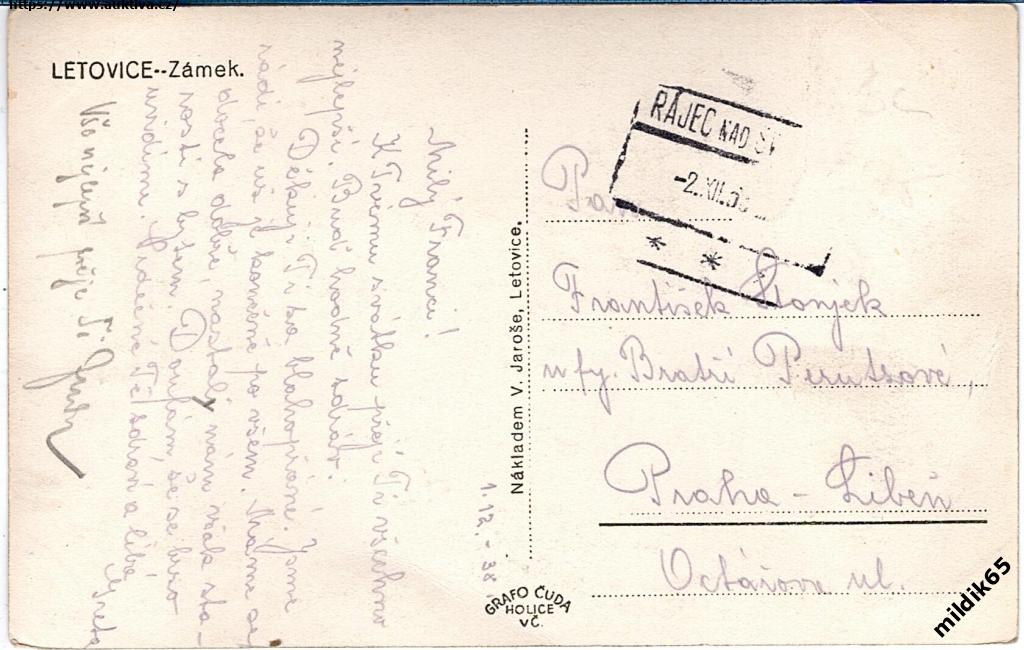 https://www.auktiva.cz/
LETOVICE--Zámek.
1.12.-38.
Milý Franci!
K Tvému svátku přeji Ti všechno
nejlepší. Buď hodně zdráv.
Děkuji Ti za blahopřání. Jsme
rádi že už je konečně po všem. Máme se
docela dobře, nastaly nám však sta-
rosti s bytem. Doufám, že se brzo
uvidíme. Srdečně Tě zdraví a líbá
Greta
Vše nejlepší přeje Ti
Nákladem V. Jaroše, Letovice.
GRAFO ČUDA
HOLICE
VČ.
RÁJEC NAD SV
-2.XII.38
* *
Pan
František Stonjek
u fy. Bratří Perutzové,
Praha - Libeň
Octářova ul.
mildik65